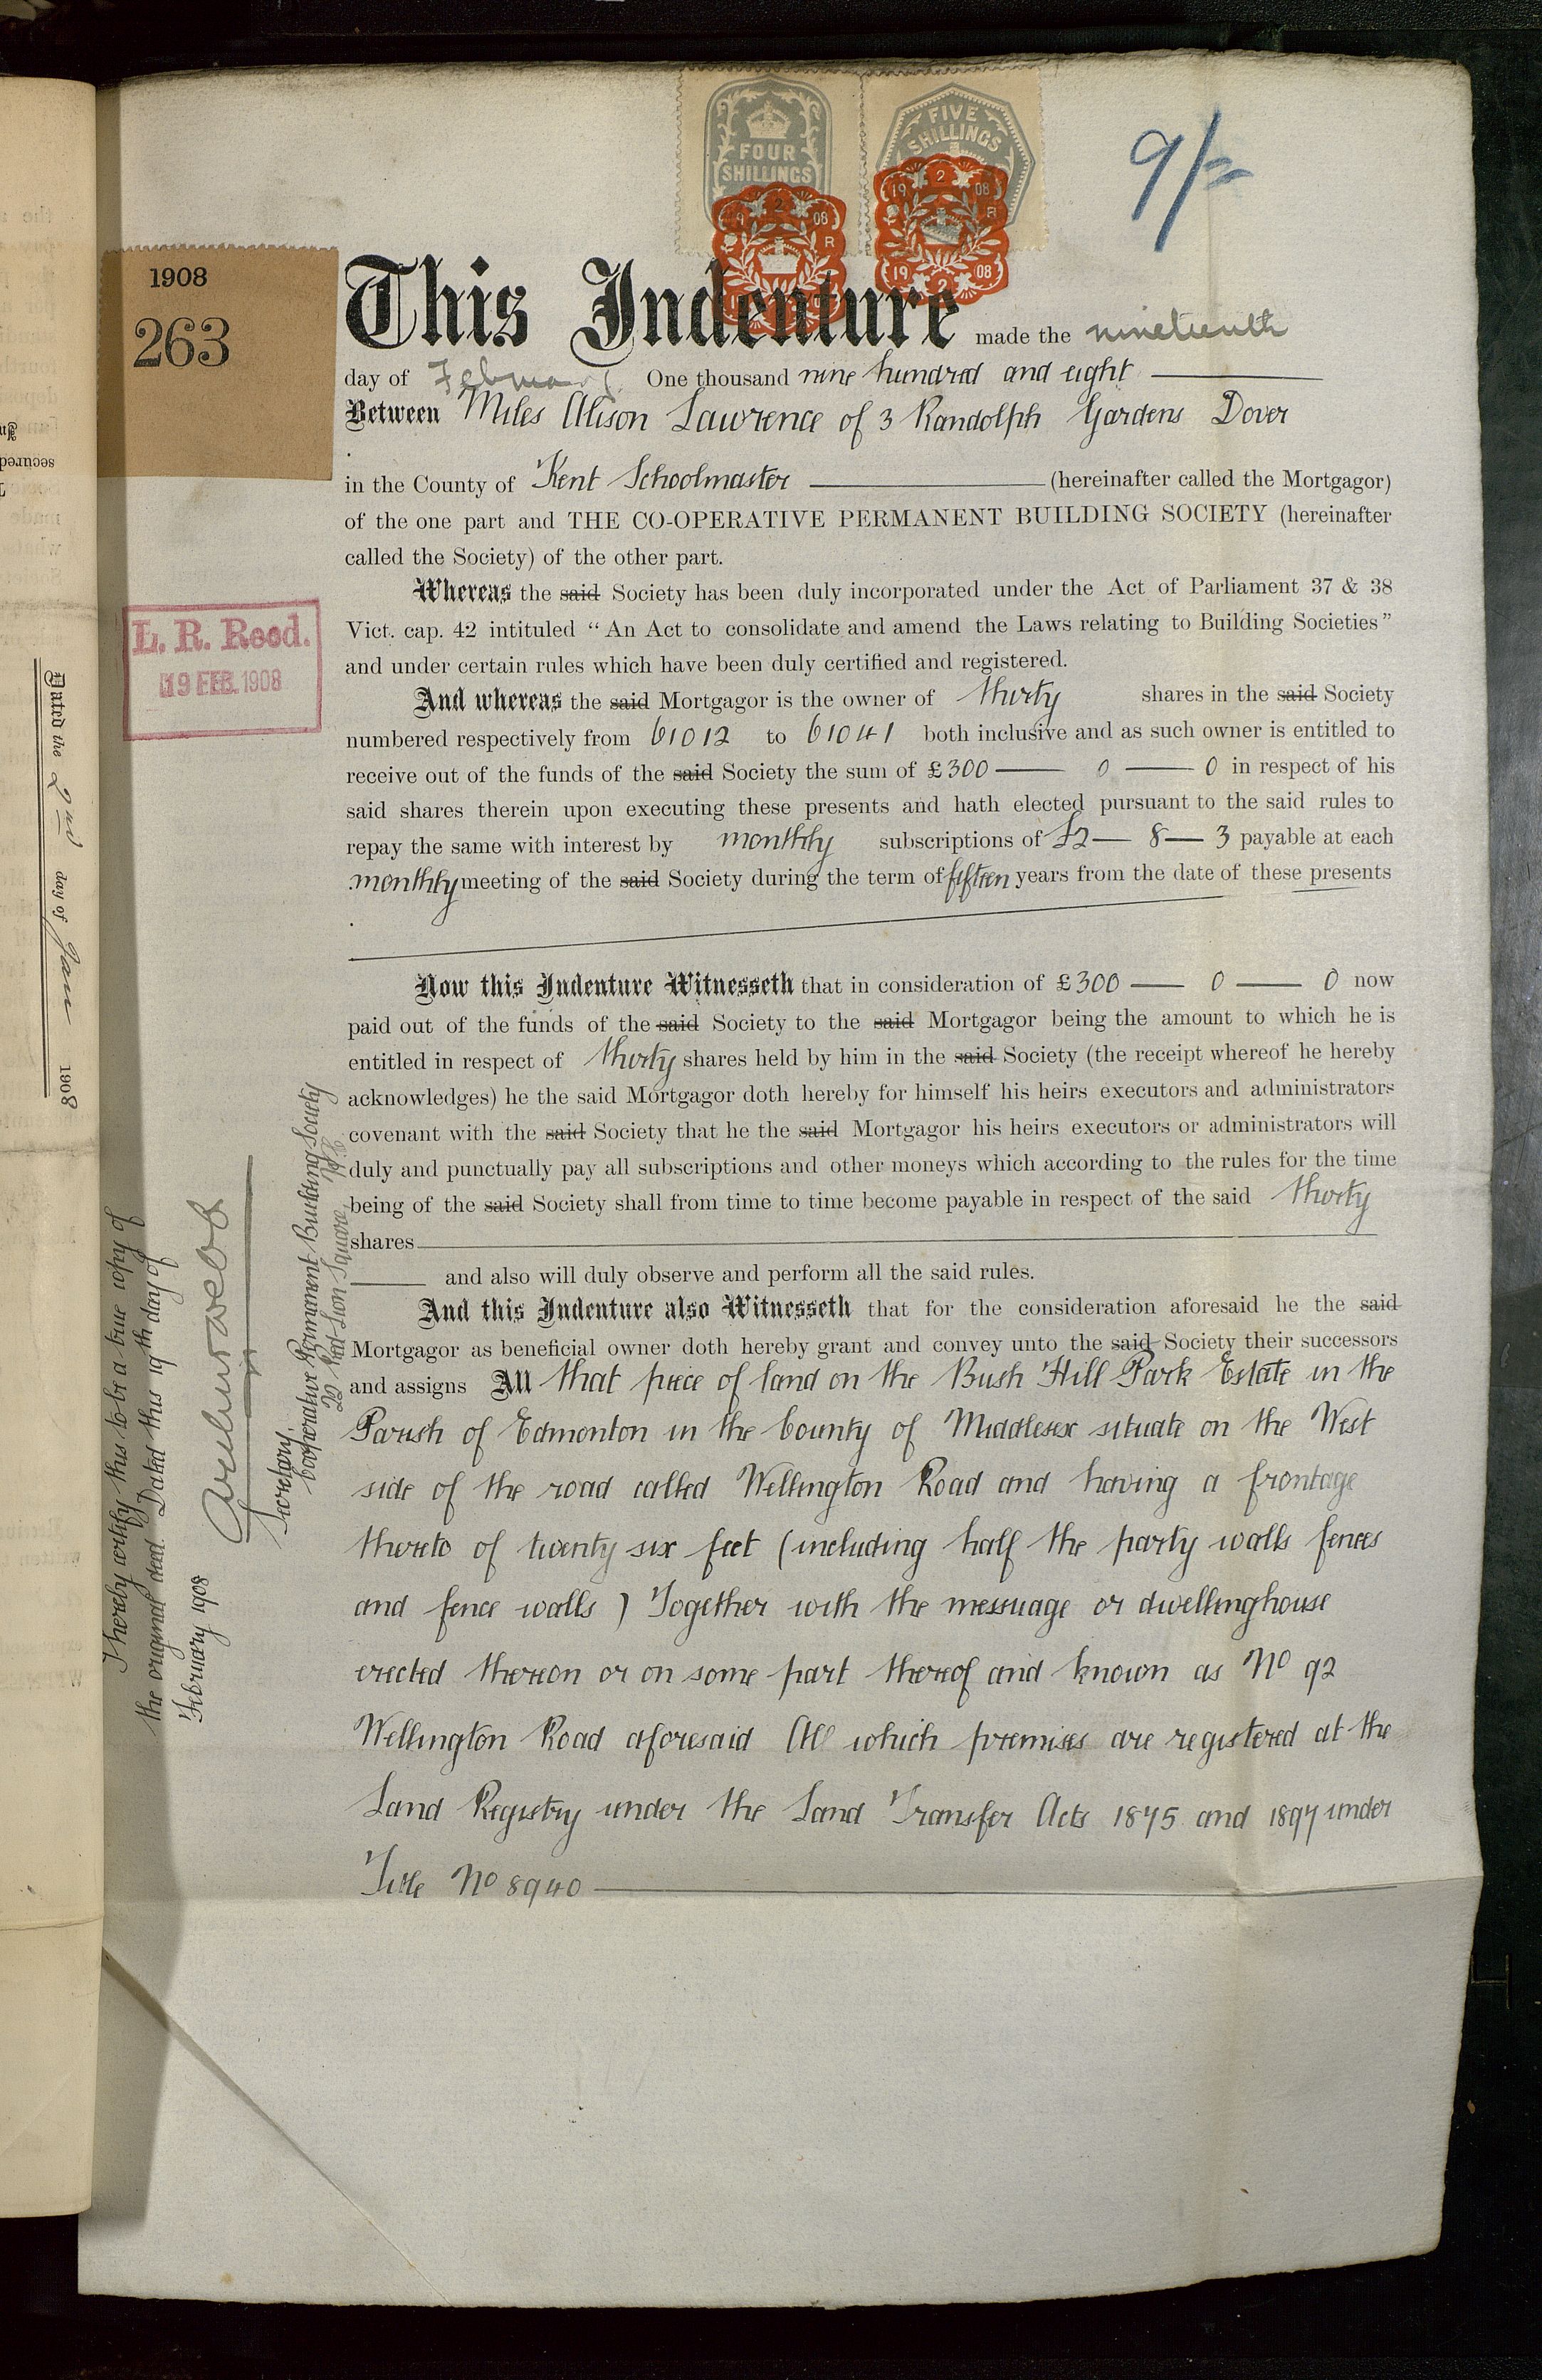 FOUR
SHILLINGS
FIVE
SHILLINGS
19 2 08
R
19 2 08
9/=
1908
263
This Indenture made the nineteenth
day of February One thousand nine hundred and eight
Between Miles Alison Lawrence of 3 Randolph Gardens Dover
in the County of Kent Schoolmaster (hereinafter called the Mortgagor)
of the one part and THE CO-OPERATIVE PERMANENT BUILDING SOCIETY (hereinafter
called the Society) of the other part.
Whereas the said Society has been duly incorporated under the Act of Parliament 37 & 38
Vict. cap. 42 intituled “An Act to consolidate and amend the Laws relating to Building Societies”
and under certain rules which have been duly certified and registered.
L. R. Recd.
19 FEB. 1908
And whereas the said Mortgagor is the owner of thirty shares in the said Society
numbered respectively from 61012 to 61041 both inclusive and as such owner is entitled to
receive out of the funds of the said Society the sum of £300 — 0 — 0 in respect of his
said shares therein upon executing these presents and hath elected pursuant to the said rules to
repay the same with interest by monthly subscriptions of £2 — 8 — 3 payable at each
monthly meeting of the said Society during the term of fifteen years from the date of these presents
Now this Indenture Witnesseth that in consideration of £300 — 0 — 0 now
paid out of the funds of the said Society to the said Mortgagor being the amount to which he is
entitled in respect of thirty shares held by him in the said Society (the receipt whereof he hereby
acknowledges) he the said Mortgagor doth hereby for himself his heirs executors and administrators
covenant with the said Society that he the said Mortgagor his heirs executors or administrators will
duly and punctually pay all subscriptions and other moneys which according to the rules for the time
being of the said Society shall from time to time become payable in respect of the said thirty
shares
and also will duly observe and perform all the said rules.
And this Indenture also Witnesseth that for the consideration aforesaid he the said
Mortgagor as beneficial owner doth hereby grant and convey unto the said Society their successors
and assigns All that piece of land on the Bush Hill Park Estate in the
Parish of Edmonton in the County of Middlesex situate on the West
side of the road called Wellington Road and having a frontage
thereto of twenty six feet (including half the party walls fences
and fence walls) Together with the messuage or dwellinghouse
erected thereon or on some part thereof and known as No 92
Wellington Road aforesaid All which premises are registered at the
Land Registry under the Land Transfer Acts 1875 and 1897 under
Title No 8940
I hereby certify this to be a true copy of
the original deed. Dated this 19th day of
February 1908
Secretary,
Cooperative Permanent Building Society
22 Red Lion Square, W.C.
Dated the 2nd day of Jan 1908
secured